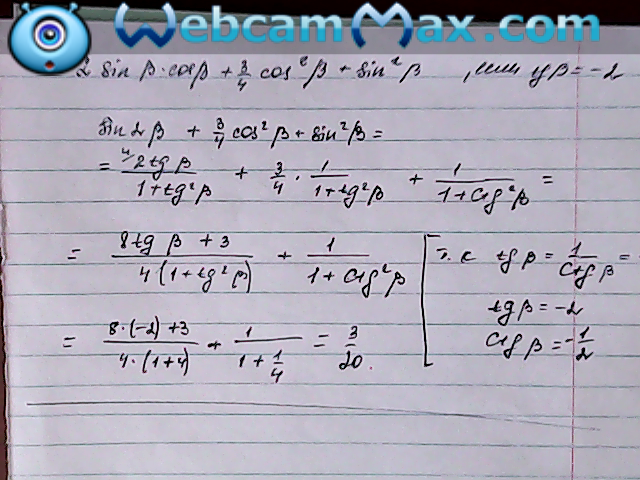 WebcamMax.com
2 sin β·cosβ + 3/4 cos²β + sin²β , если tgβ = -2
sin 2β + 3/4 cos²β + sin²β =
= 4/ 2tg β / (1+tg²β) + 3/4 · 1/(1+tg²β) + 1/(1+Ctg²β) =
= (8tg β + 3) / (4(1+tg²β)) + 1/(1+Ctg²β)
= (8·(-2)+3) / (4·(1+4)) + 1/(1+1/4) = 3/20.
т.к tgβ = 1/Ctgβ =
tgβ = -2
Ctgβ = -1/2